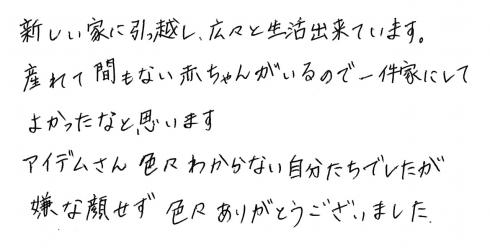 新しい家に引っ越し、広々と生活出来ています。
産れて間もない赤ちゃんがいるので一件家にして
よかったなと思います
アイデムさん 色々わからない自分たちでしたが
嫌な顔せず 色々ありがとうございました.